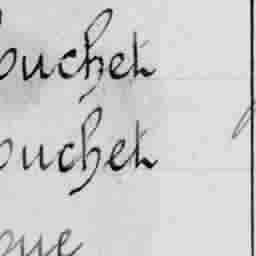 ouchet
ouchet
que